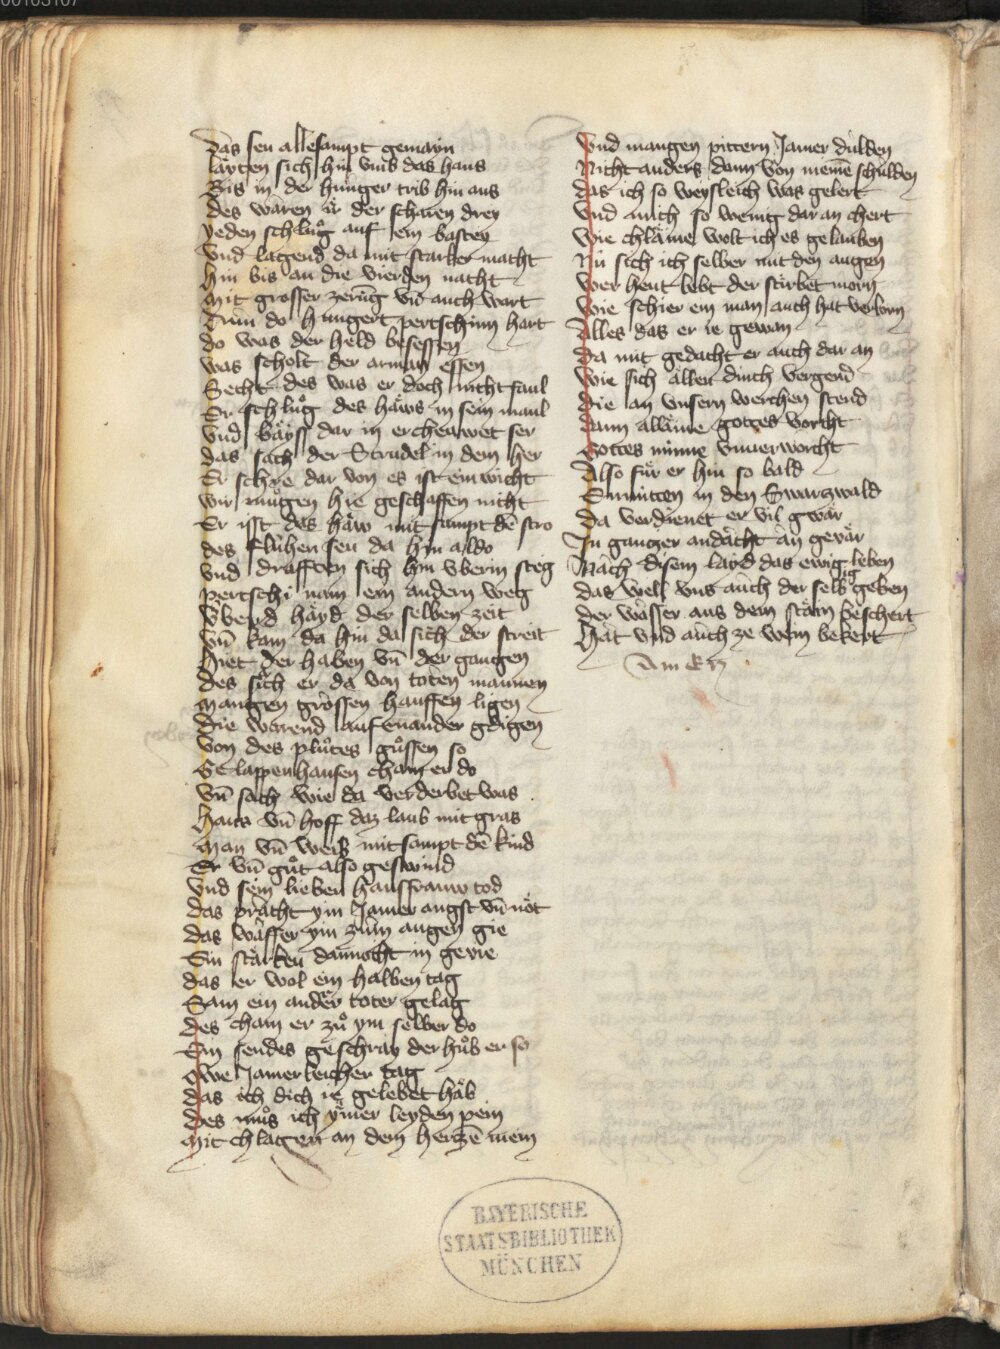 00105107
Das seu allesampt gemayn
Läyten sich hin vmb das haus
Bis in der hunger trib hin aus
Des waren ir der scharen drey
Yeden schlůg auf ein bastey
Vnd lagend da mit starker macht
Hin bis an die vierden nacht
Mit grosser zerūg vn̄ auch wart
Drin do hungert pertschinn hart
Do was der held besessen
Was scholt der arman essen
Secht des was er doch nicht faul
Er schlůg des häws in sein maul
Vnd bäyss dar in erchenwet ser
Das sach der Strudel in dem her
Er schre dar von es ist ein wicht
Wir mügen hie geschaffen nicht
Er isst das häw mit sampt dē stro
Des fluhen seu da hin aldo
Vnd drafften sich hin vberin steg
Pertschi nam ein andern weg
Vber d häyd der selben zeit
Vn̄ kam da hin da sich der streit
Hiet der haben vn̄ der gangen
Des sich er da von toten mannen
Mangen grossen hauffen ligen
Die warend auf enander gdigen
Von des plůtes gůssen so
Ge lappenhausen cham er do
Vn̄ sach wie da verderbet was
Haus vn̄ hoff daz laub mit gras
Man vn̄ weib mit sampt dē kind
Er vn̄ gůt also geswind
Vnd sein lieben hausfrauw tod
Das pracht ym Jamer angst vn̄ not
Das wasser ym zum augen gie
Ein starken damocht in gevie
Das er wol ein halben tag
Sam ein ander toter gelag
Des cham er zů ym selber do
Ein sendes geschray der hůb er so
Owe Jamerleicher tag
Das ich dich ie gelebet hab
Des můs ich ymer leyden pein
Mit chlagen an dem herczē mein
Vnd mangen pittern Jamer dulden
Nicht anders dann von meinē schulden
Das ich so weysleich was gelert
Vnd mich so wenig dar an chert
Wie chläine wolt ich es gelauben
Nu sich ich selber mit den augen
Wer heut lebt der stirbet morn
Wie schier ein man auch hat verlorn
Alles das er ie gewan
Da mit gedacht er auch dar an
Wie sich allen dinch vergend
Die an vnsern werchen stend
Dann alläine gottes vorcht
Gottes minne vnuerworcht
Also fůr er hin so bald
Enmitten in den Swarczwald
Da verdienet er vil gwär
In ganczer andacht an gevär
Nach disem layd das ewig leben
Das well vns auch der selbig geben
Der wasser aus dem stain beschert
Hat vnd auch ze wein bekert
Amen
BAYERISCHE
STAATSBIBLIOTHEK
MÜNCHEN